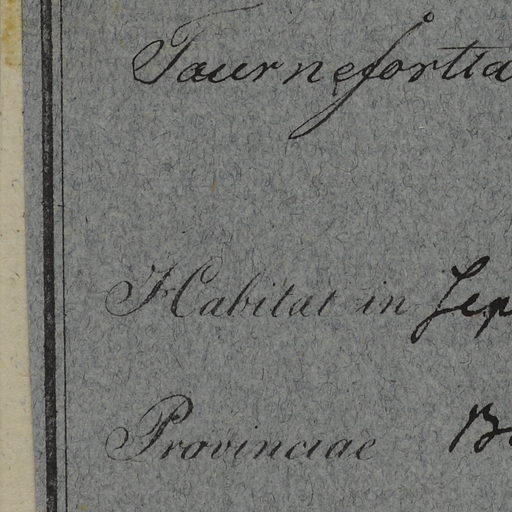 Tournefortia
Habitat in Sep
Provinciae B